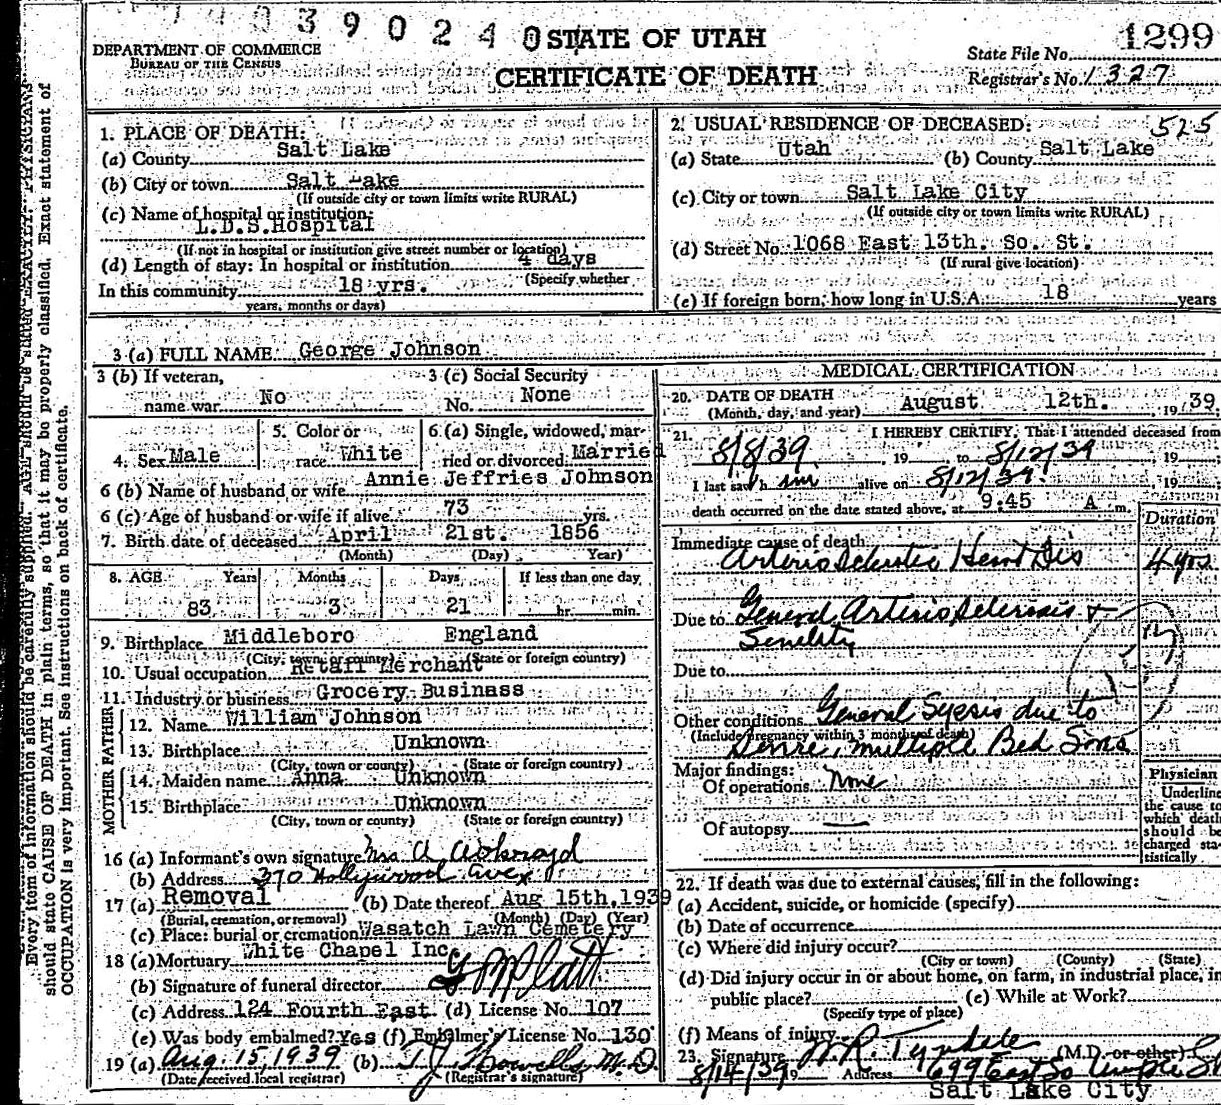 39024
STATE OF UTAH
CERTIFICATE OF DEATH
DEPARTMENT OF COMMERCE
BUREAU OF THE CENSUS
State File No. 1299
Registrar's No. 1327
1. PLACE OF DEATH:
(a) County Salt Lake
(b) City or town Salt Lake
(If outside city or town limits write RURAL)
(c) Name of hospital or institution:
L.D.S. Hospital
(If not in hospital or institution give street number or location)
(d) Length of stay: In hospital or institution 4 days
(Specify whether
In this community 18 yrs.
years, months or days)
2. USUAL RESIDENCE OF DECEASED: 525
(a) State Utah (b) County Salt Lake
(c) City or town Salt Lake City
(If outside city or town limits write RURAL)
(d) Street No. 1068 East 13th. So. St.
(If rural give location)
(e) If foreign born, how long in U.S.A. 18 years
3 (a) FULL NAME George Johnson
3 (b) If veteran, name war No
3 (c) Social Security No. None
4. Sex Male
5. Color or race White
6 (a) Single, widowed, married or divorced Married
6 (b) Name of husband or wife Annie Jeffries Johnson
6 (c) Age of husband or wife if alive 73 yrs.
7. Birth date of deceased April 21st. 1856
(Month) (Day) Year)
8. AGE Years Months Days If less than one day
83 3 21 hr. min.
9. Birthplace Middleboro England
(City, town or county) (State or foreign country)
10. Usual occupation Retail Merchant
11. Industry or business Grocery Businass
FATHER
12. Name William Johnson
13. Birthplace Unknown
(City, town or county) (State or foreign country)
MOTHER
14. Maiden name Anna Unknown
15. Birthplace Unknown
(City, town or county) (State or foreign country)
16 (a) Informant's own signature Mrs A
(b) Address 370 Hollywood Ave
17 (a) Removal (b) Date thereof Aug 15th, 1939
(Burial, cremation, or removal) (Month) (Day) (Year)
(c) Place: burial or cremation Wasatch Lawn Cemetery
18 (a) Mortuary White Chapel Inc.
(b) Signature of funeral director
(c) Address 124 Fourth East (d) License No. 107
(e) Was body embalmed? Yes (f) Embalmer's License No. 130
19 (a) Aug. 15, 1939 (b) T. J. Howells, M.D.
(Date received local registrar) (Registrar's signature)
MEDICAL CERTIFICATION
20. DATE OF DEATH
(Month, day, and year) August 12th. 1939
21. I HEREBY CERTIFY, That I attended deceased from
8/8/39 19 to 8/12/39 19
I last saw h im alive on 8/12/39. 19
death occurred on the date stated above, at 9:45 A m.
Duration
Immediate cause of death
Arterio Sclerotic Heart Dis 4 yrs
Due to General Arteriosclerosis +
Senility
Due to
Other conditions General Sepsis due to
(Include pregnancy within 3 months of death)
Severe, multiple Bed Sores
Major findings:
Of operations None
Of autopsy
Physician
Underline
the cause to
which death
should be
charged sta-
tistically
22. If death was due to external causes, fill in the following:
(a) Accident, suicide, or homicide (specify)
(b) Date of occurrence
(c) Where did injury occur?
(City or town) (County) (State)
(d) Did injury occur in or about home, on farm, in industrial place, in
public place? (e) While at Work?
(Specify type of place)
(f) Means of injury
23. Signature W. R. Tyndale (M.D. or other)
8/14/39 19 Address 699 East So Temple St
Salt Lake City
Every item of information should be carefully supplied. AGE should be stated EXACTLY. PHYSICIANS
should state CAUSE OF DEATH in plain terms, so that it may be properly classified. Exact statement of
OCCUPATION is very important. See instructions on back of certificate.